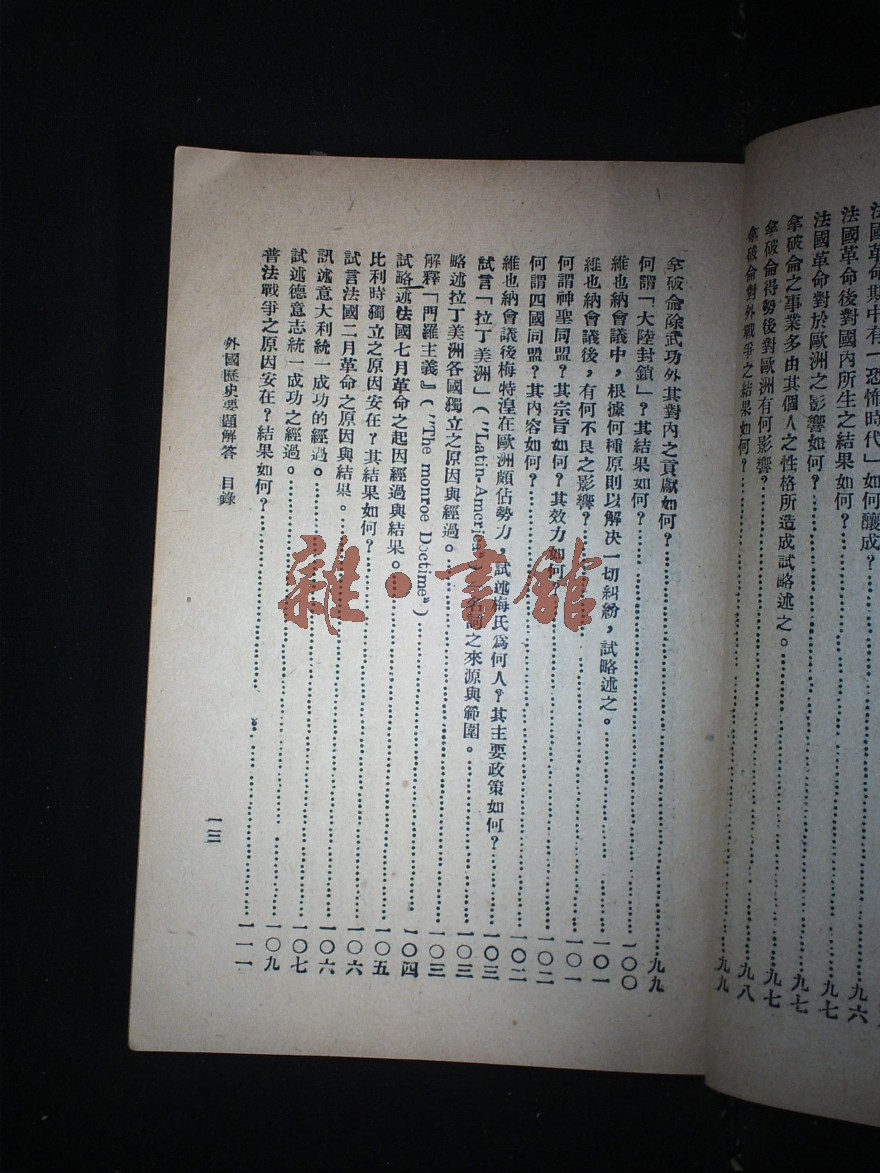 法國革命期中有「恐怖時代」如何釀成？
法國革命後對國內所生之結果如何？……九六
法國革命對於歐洲之影響如何？……九七
拿破侖之事業多由其個人之性格所造成試略述之。……九七
拿破侖得勢後對歐洲有何影響？……九七
拿破侖對外戰爭之結果如何？……九八
九九
拿破侖除武功外其對內之貢獻如何？……九九
何謂「大陸封鎖」？其結果如何？……一〇〇
維也納會議中，根據何種原則以解决一切糾紛，試略述之。……一〇一
維也納會議後，有何不良之影響？……一〇一
何謂神聖同盟？其宗旨如何？其效力如何？……一〇二
何謂四國同盟？其內容如何？……一〇二
維也納會議後梅特湟在歐洲頗佔勢力，試述梅氏爲何人？其主要政策如何？……一〇三
試言「拉丁美洲」("Latin-America")名詞之來源與範圍。……一〇三
略述拉丁美洲各國獨立之原因與經過。……一〇三
解釋「門羅主義』("The monroe Doctime")……一〇四
試略述法國七月革命之起因經過與結果。……一〇五
比利時獨立之原因安在？其結果如何？……一〇六
試言法國二月革命之原因與結果。……一〇六
訊述意大利統一成功的經過。……一〇七
試述德意志統一成功之經過。……一〇九
普法戰爭之原因安在？結果如何？……一一一
外國歷史要題解答　目錄
一三
雜·書館